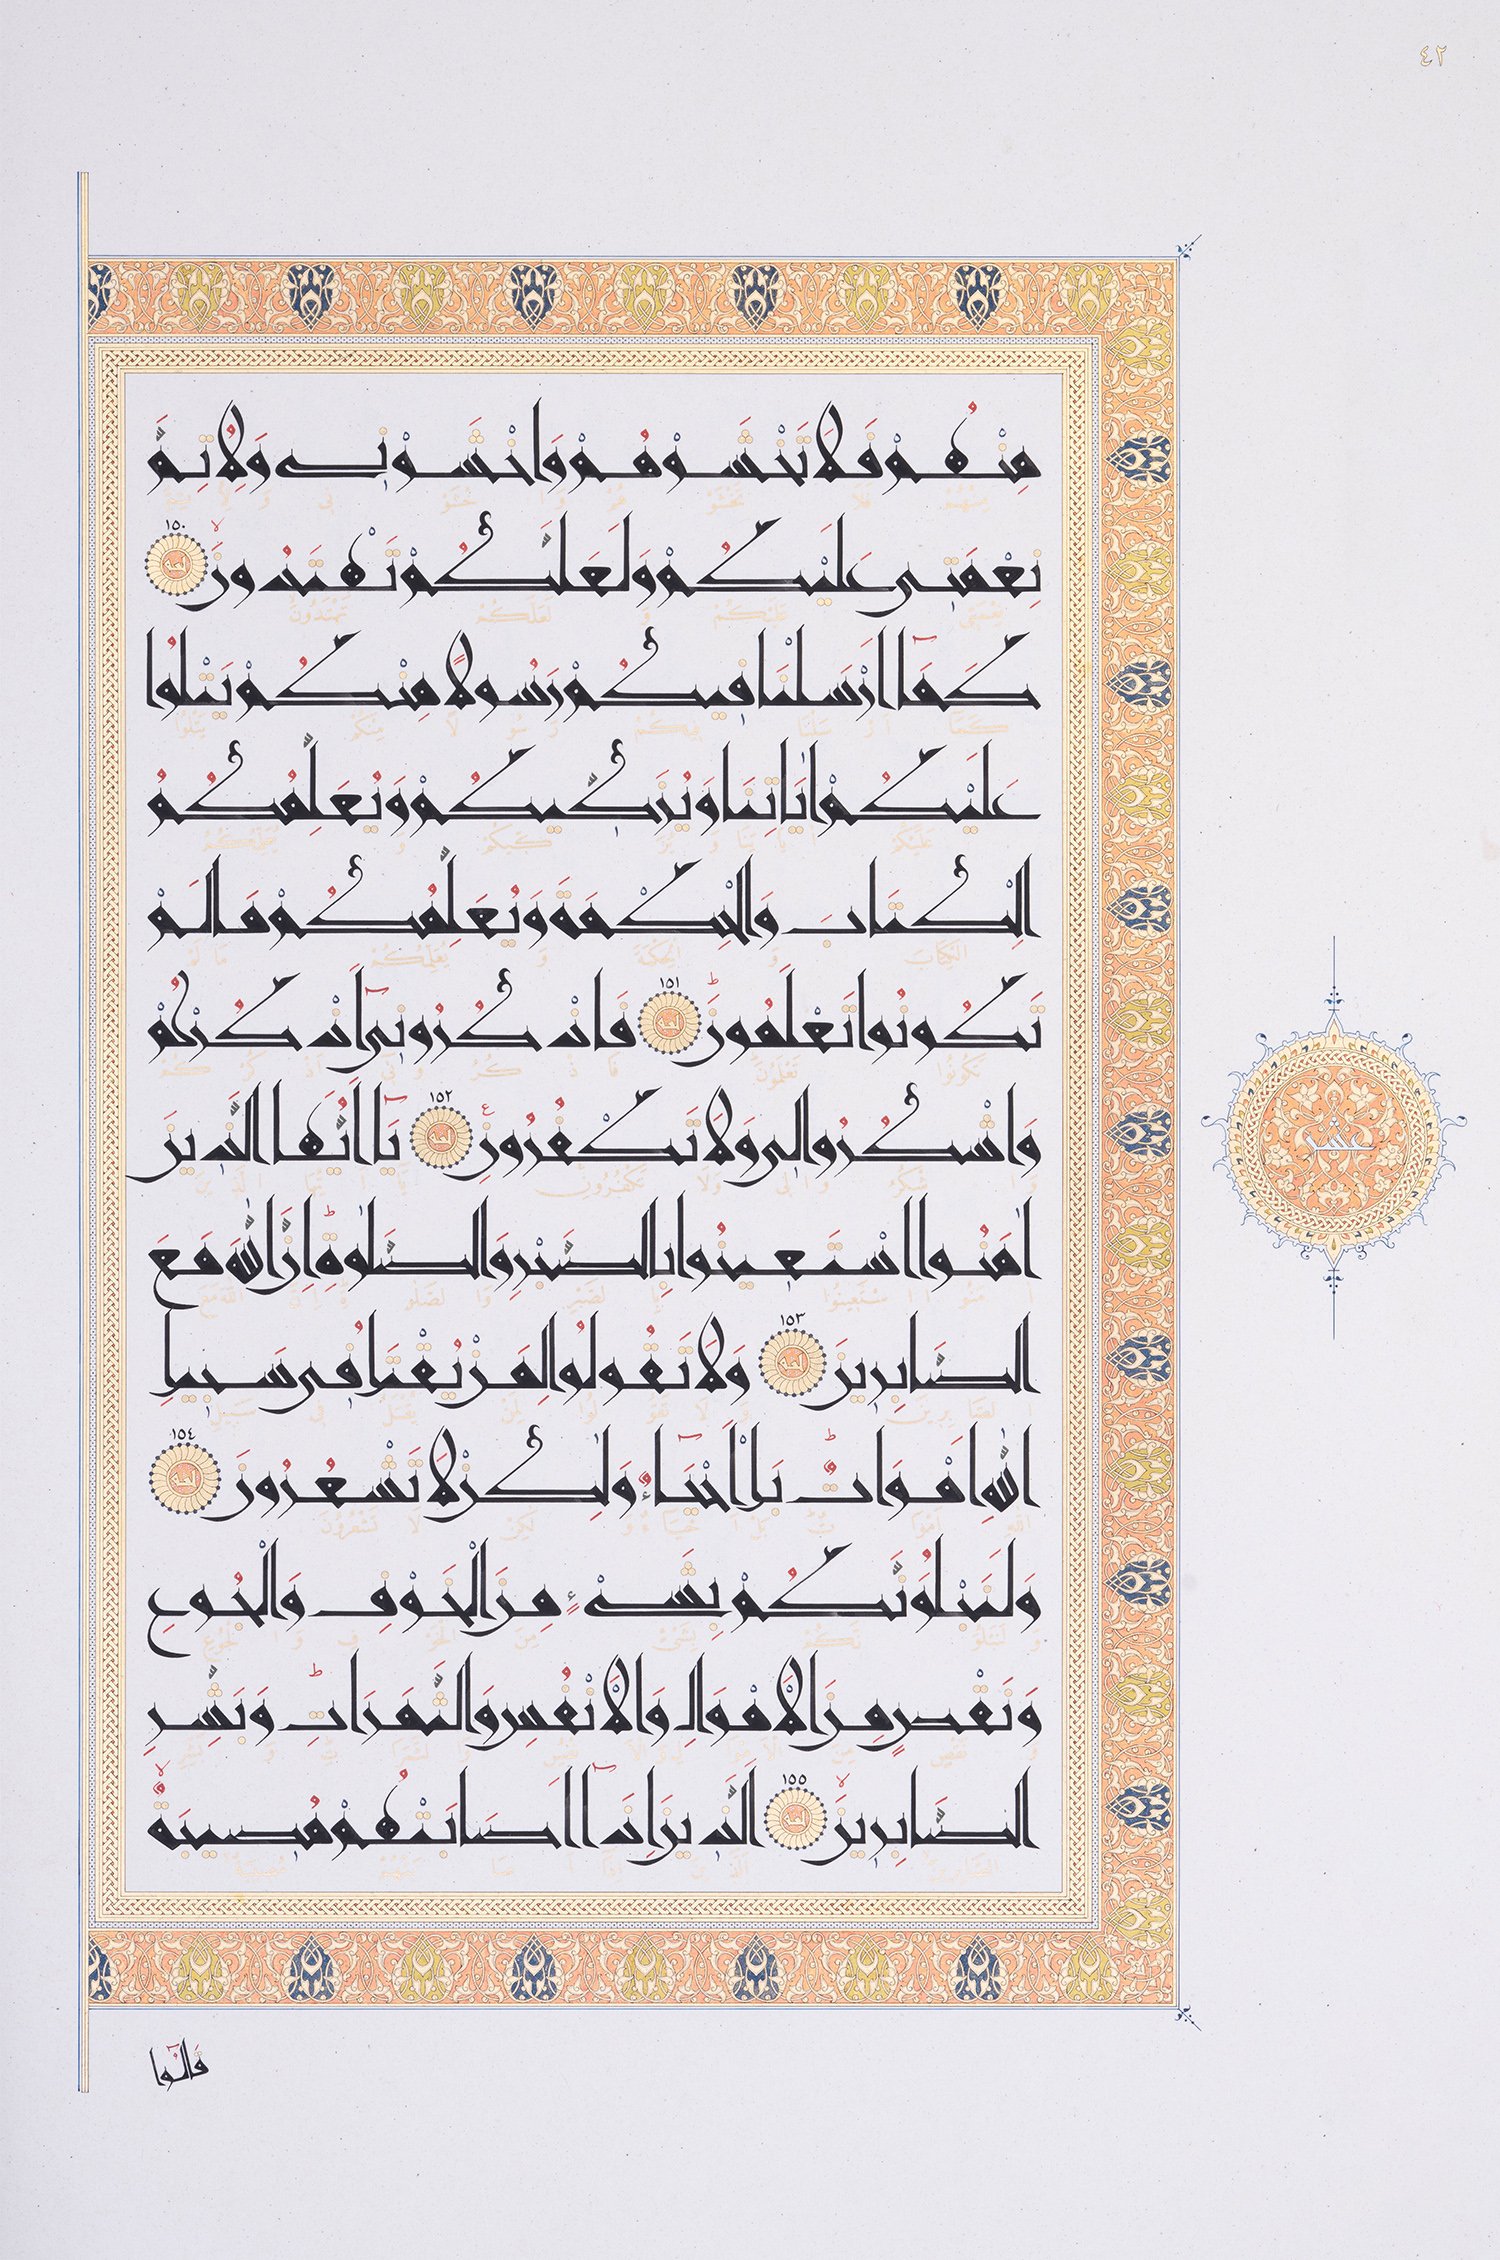 ٤٢
مِنْهُمْ فَلَا تَخْشَوْهُمْ وَاخْشَوْنِي وَلِأُتِمَّ
نِعْمَتِي عَلَيْكُمْ وَلَعَلَّكُمْ تَهْتَدُونَ ۙ ١٥٠
كَمَآ اَرْسَلْنَا فِيكُمْ رَسُولًا مِنْكُمْ يَتْلُوا
عَلَيْكُمْ اٰيَاتِنَا وَيُزَكِّيكُمْ وَيُعَلِّمُكُمُ
الْكِتَابَ وَالْحِكْمَةَ وَيُعَلِّمُكُمْ مَا لَمْ
تَكُونُوا تَعْلَمُونَ ؕ ١٥١ فَاذْكُرُونِٓي اَذْكُرْكُمْ
وَاشْكُرُوا لِي وَلَا تَكْفُرُونِ ١٥٢ يَٓا اَيُّهَا الَّذِينَ
اٰمَنُوا اسْتَعِينُوا بِالصَّبْرِ وَالصَّلٰوةِ ؕ اِنَّ اللّٰهَ مَعَ
الصَّابِرِينَ ١٥٣ وَلَا تَقُولُوا لِمَنْ يُقْتَلُ فِي سَبِيلِ
اللّٰهِ اَمْوَاتٌ ؕ بَلْ اَحْيَٓاءٌ وَلٰكِنْ لَا تَشْعُرُونَ ١٥٤
وَلَنَبْلُوَنَّكُمْ بِشَيْءٍ مِنَ الْخَوْفِ وَالْجُوعِ
وَنَقْصٍ مِنَ الْاَمْوَالِ وَالْاَنْفُسِ وَالثَّمَرَاتِ ؕ وَبَشِّرِ
الصَّابِرِينَ ۙ ١٥٥ الَّذِينَ اِذَٓا اَصَابَتْهُمْ مُصِيبَةٌ ۙ
عشر
قَالُٓوا